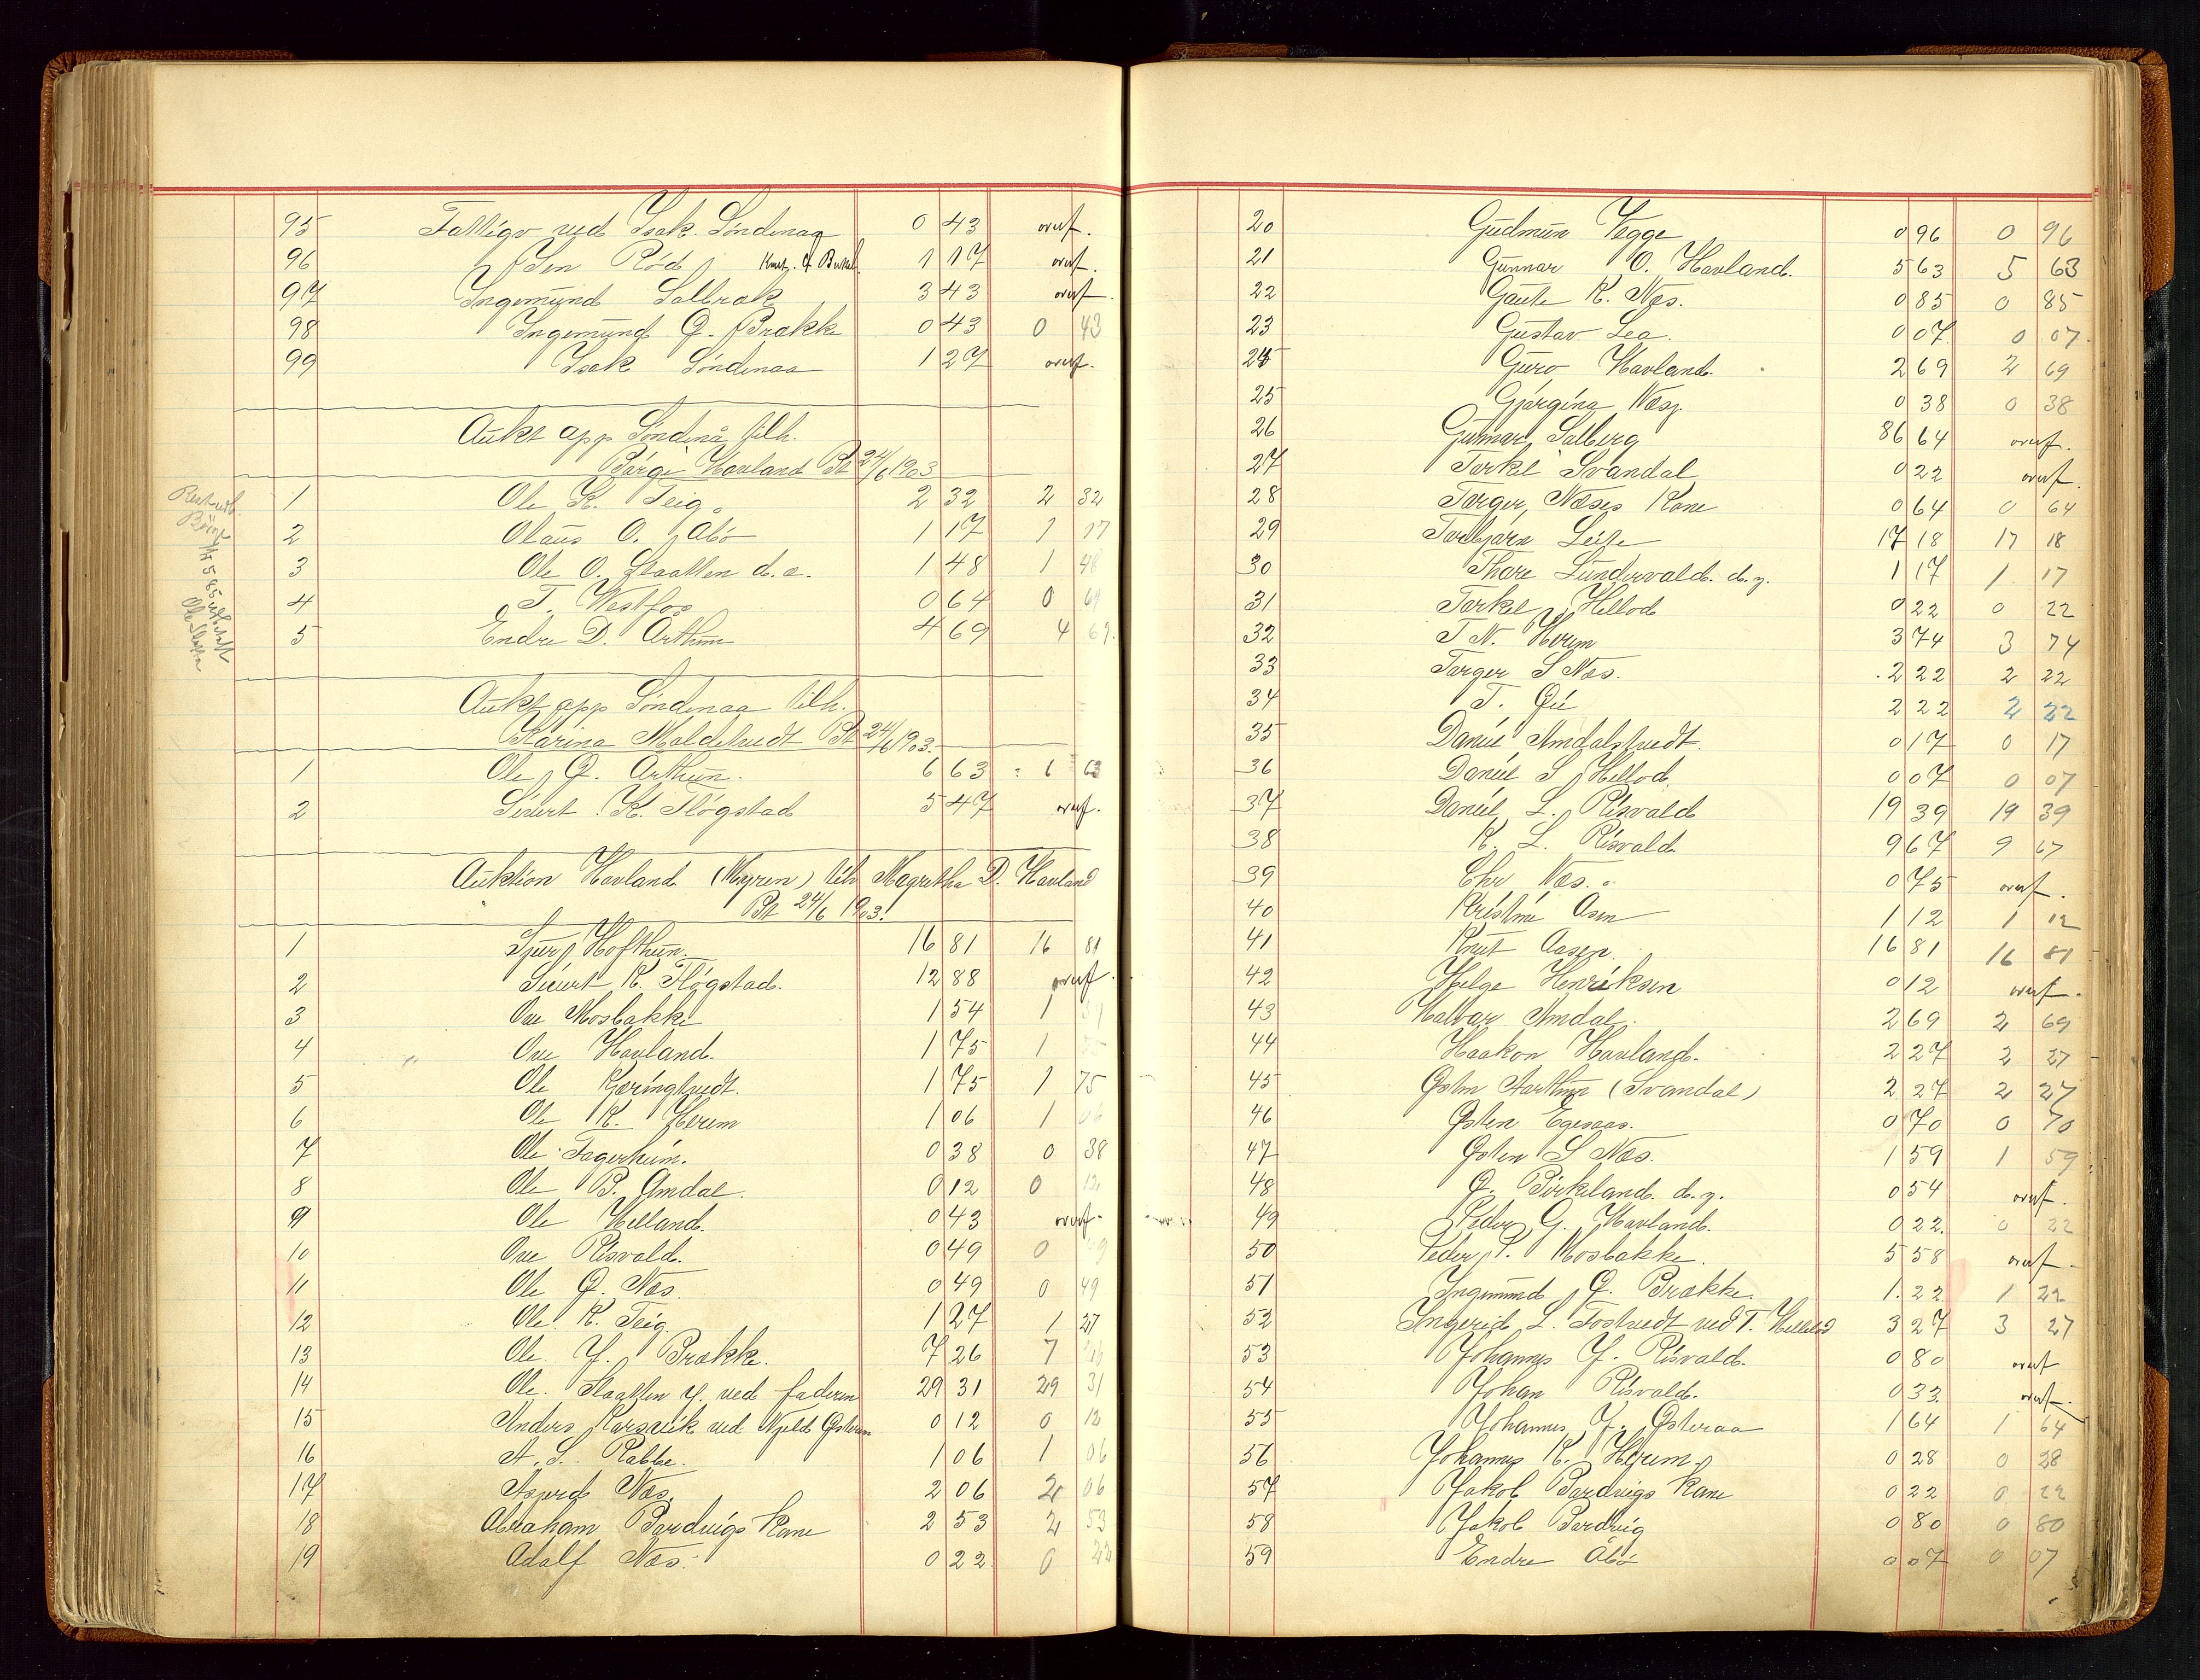 95 Fattigv ved Isak Søndenaa 0 43 overf.
96 Iven Rød 1 17 overf.
97 Ingemund Salbrak 3 43 overf.
98 Ingemund G. Brakke 0 43 0 43
99 Isak Søndenaa 1 27 overf.
Aukt app Søndenå tilh.
Børge Havland Bt 24/6 1903
1 Ole K. Teig. 2 32 2 32
2 Olaus O. Åbø 1 17 1 17
3 Ole O. Slaatten d.e. 1 48 1 48
4 T. Westfos 0 64 0 64
5 Endre D. Arthun 4 69 4 69
Aukt app Søndenaa tilh.
Karina Maldetvedt Bt 24/6 1903.
1 Ole G. Arthun. 6 63 6 63
2 Sivert K. Fløgstad 5 47 overf.
Auktion Havland (Myren) tilh Magretha D. Havland
Bt 24/6 1903.
1 Sjur Hofthun. 16 81 16 81
2 Sivert K. Fløgstad. 12 88 overf.
3 Ove Mosbakke 1 54 1
4 Ove Havland. 1 75 1
5 Ole Kjæringtvedt. 1 75 1 75
6 Ole K. Herum 1 06 1 06
7 Ole Fagerheim. 0 38 0 38
8 Ole B. Amdal. 0 12 0 12
9 Ole Helland. 0 43 overf.
10 Ove Risvold. 0 49 0 49
11 Ole G. Næs. 0 49 0 49
12 Ole K. Teig. 1 27 1 27
13 Ole J. Brakke. 7 26 7 26
14 Ole Slaatten y. ved faderen 29 31 29 31
15 Anders Karsvik ved Njeld Østerøen 0 12 0 12
16 A. S. Rabbe. 1 06 1 06
17 Asserd Næs. 2 06 2 06
18 Abraham Bardvigs Kone 2 53 2 53
19 Adolf Næs. 0 22 0 22
20 Gudmun Vegge 0 96 0 96
21 Gunnar O. Havland. 5 63 5 63
22 Gaute K. Næs. 0 85 0 85
23 Gustav Lea. 0 07 0 07
24 Guro Havland. 2 69 2 69
25 Gjørgina Næs. 0 38 0 38
26 Gunnar Salberg 86 64 overf.
27 Torkel Svandal 0 22 overf.
28 Torger Næses Kone 0 64 0 64
29 Torbjørn Leite 17 18 17 18
30 Thore Lundervold. d.y. 1 17 1 17
31 Torkel Hellod 0 22 0 22
32 T N. Herum 3 74 3 74
33 Torger S Næs. 2 22 2 22
34 T. Gu 2 22 2 22
35 Daniel Amdalstvedt. 0 17 0 17
36 Daniel S Hellod. 0 07 0 07
37 Daniel L. Risvold 19 39 19 39
38 K. L. Risvold. 9 67 9 67
39 Chr Næs. 0 75 overf.
40 Kristine Åsen 1 12 1 12
41 Knut Aasen. 16 81 16 81
42 Helge Henriksen 0 12 overf.
43 Halvar Amdal. 2 69 2 69
44 Haakon Havland. 2 27 2 27
45 Østen Aarthun (Svandal) 2 27 2 27
46 Østen Egesaas. 0 70 0 70
47 Østen S Næs. 1 59 1 59
48 G. Birkeland. d.y. 0 54 overf.
49 Peder G. Havland. 0 22 0 22
50 Peder P. Mosbakke. 5 58 overf.
51 Ingemund G. Brakke. 1.22 1 22
52 Ingerid L. Tostvedt ved T. Hellod 3 27 3 27
53 Johannes J. Risvold. 0 80 overf
54 Johan Risvold. 0 33 overf.
55 Johannes J. Østeraa 1 64 1 64
56 Johannes K. Herum 0 28 0 28
57 Jakob Bardvigs Kone 0 22 0 22
58 Jakob Bardvig 0 80 0 80
59 Endre Åbø 0 07 0 07